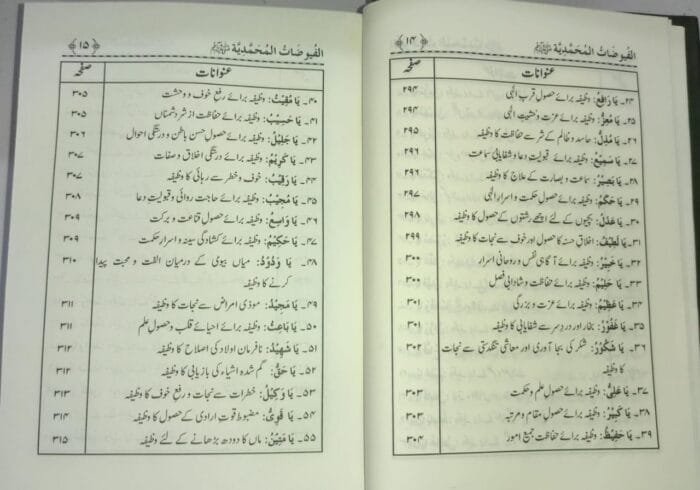 ﴿۱۴﴾ الفیوضات المحمدیة ﷺ
عنوانات صفحہ
۲۴۔ یَا رَافِعُ: وظیفہ برائے حصول قربِ الٰہی ۲۹۴
۲۵۔ یَا مُعِزُّ: وظیفہ برائے عزت و خشیتِ الٰہی ۲۹۴
۲۶۔ یَا مُذِلُّ: حاسد و ظالم کے شر سے حفاظت کا وظیفہ ۲۹۵
۲۷۔ یَا سَمِیْعُ: وظیفہ برائے قبولیت دعا و شفایابی سماعت ۲۹۶
۲۸۔ یَا بَصِیْرُ: سماعت و بصارت کے علاج کا وظیفہ ۲۹۶
۲۹۔ یَا حَکَمُ: وظیفہ برائے حصول حکمت و اسرار الٰہی ۲۹۷
۳۰۔ یَا عَدْلُ: بچیوں کے لئے اچھے رشتوں کے حصول کا وظیفہ ۲۹۸
۳۱۔ یَا لَطِیْفُ: اخلاق حسنہ کا حصول اور خوف سے نجات کا وظیفہ ۲۹۹
۳۲۔ یَا خَبِیْرُ: وظیفہ برائے آگاہی نفس و روحانی اسرار ۳۰۰
۳۳۔ یَا حَلِیْمُ: وظیفہ برائے حفاظت و شادابی فصل ۳۰۰
۳۴۔ یَا عَظِیْمُ: وظیفہ برائے عزت و بزرگی ۳۰۱
۳۵۔ یَا غَفُوْرُ: بخار اور درد سر سے شفایابی کا وظیفہ ۳۰۱
۳۶۔ یَا شَکُوْرُ: شکر کی بجا آوری اور معاشی تنگدستی سے نجات ۳۰۲
کا وظیفہ
۳۷۔ یَا عَلِیُّ: وظیفہ برائے حصول علم و حکمت ۳۰۳
۳۸۔ یَا کَبِیْرُ: وظیفہ برائے حصول مقام و مرتبہ ۳۰۳
۳۹۔ یَا حَفِیْظُ: وظیفہ برائے حفاظت جمیع امور ۳۰۴
﴿۱۵﴾ الفیوضات المحمدیة ﷺ
عنوانات صفحہ
۴۰۔ یَا مُقِیْتُ: وظیفہ برائے رفع خوف و وحشت ۳۰۵
۴۱۔ یَا حَسِیْبُ: وظیفہ برائے حفاظت از شر دشمناں ۳۰۵
۴۲۔ یَا جَلِیْلُ: وظیفہ برائے حصول حسن باطن و درستگی احوال ۳۰۶
۴۳۔ یَا کَرِیْمُ: وظیفہ برائے درستگی اخلاق و صفات ۳۰۷
۴۴۔ یَا رَقِیْبُ: خوف و خطر سے رہائی کا وظیفہ ۳۰۷
۴۵۔ یَا مُجِیْبُ: وظیفہ برائے حاجت روائی و قبولیت دعا ۳۰۸
۴۶۔ یَا وَاسِعُ: وظیفہ برائے حصول قناعت و برکت ۳۰۹
۴۷۔ یَا حَکِیْمُ: وظیفہ برائے کشادگی سینہ و اسرار حکمت ۳۰۹
۴۸۔ یَا وَدُوْدُ: میاں بیوی کے درمیان الفت و محبت پیدا ۳۱۰
کرنے کا وظیفہ
۴۹۔ یَا مَجِیْدُ: موذی امراض سے نجات کا وظیفہ ۳۱۱
۵۰۔ یَا بَاعِثُ: وظیفہ برائے احیائے قلب و حصول علم ۳۱۱
۵۱۔ یَا شَھِیْدُ: نافرمان اولاد کی اصلاح کا وظیفہ ۳۱۲
۵۲۔ یَا حَقُّ: گم شدہ اشیاء کی بازیابی کا وظیفہ ۳۱۳
۵۳۔ یَا وَکِیْلُ: خطرات سے نجات و رفع خوف کا وظیفہ ۳۱۳
۵۴۔ یَا قَوِیُّ: مضبوط قوتِ ارادی کے حصول کا وظیفہ ۳۱۴
۵۵۔ یَا مَتِیْنُ: ماں کا دودھ بڑھانے کے لئے وظیفہ ۳۱۵